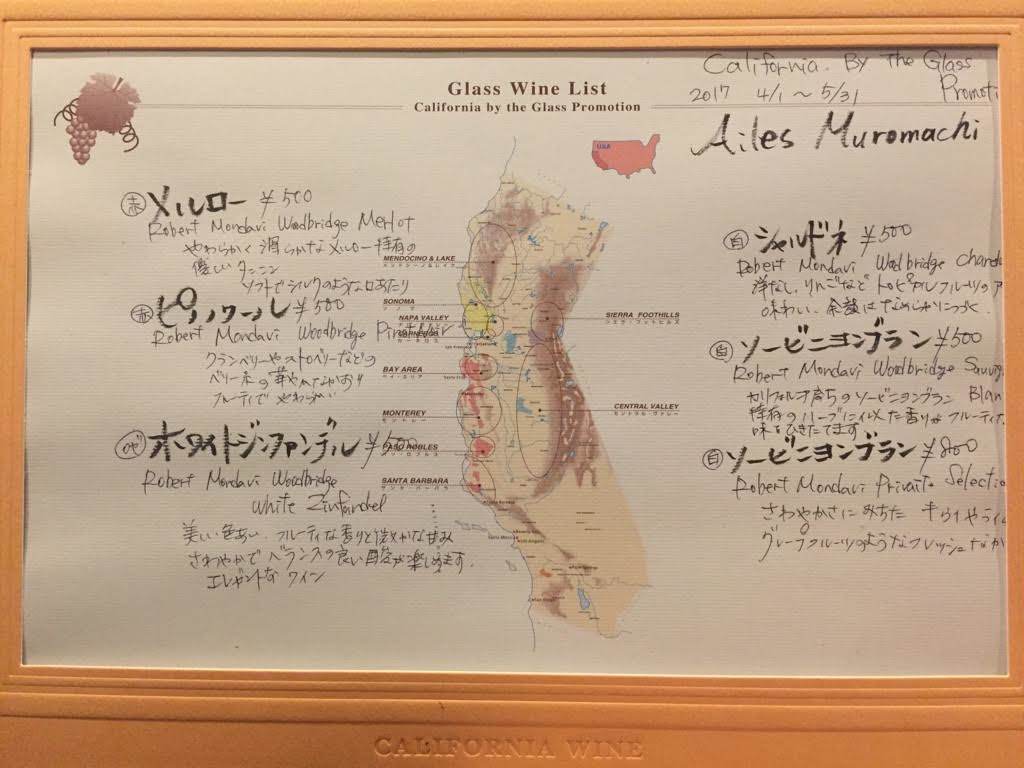 Glass Wine List
California by the Glass Promotion
California. By The Glass
Promoti
2017 4/1 〜 5/31
Ailes Muromachi
USA
赤 メルロー ¥500
Robert Mondavi Woodbridge Merlot
やわらかく滑らかなメルロー特有の
優しいタンニン
ソフトでシルクのような口あたり
赤 ピノノワール ¥500
Robert Mondavi Woodbridge Pinot Noir
クランベリーやストロベリーなどの
ベリー系の華やかなかおり
フルーティで やわらかい
ロゼ ホワイトジンファンデル ¥500
Robert Mondavi Woodbridge
White Zinfandel
美しい色あい、フルーティな香りと微かな甘み
さわやかで バランスの良い酸が楽しめます。
エレガントな ワイン
MENDOCINO & LAKE
メンドシーノ&レイク
SONOMA
ソノマ
NAPA VALLEY
CARNEROS
カーネロス
BAY AREA
ベイ・エリア
MONTEREY
モントレー
PASO ROBLES
パソ・ロブレス
SANTA BARBARA
サンタ・バーバラ
SIERRA FOOTHILLS
シエラ・フットヒルズ
CENTRAL VALLEY
セントラル・ヴァレー
白 シャルドネ ¥500
Robert Mondavi Woodbridge Chardo
洋なし、りんごなど トロピカルフルーツのア
味わい、余韻はなめらかにつづく
白 ソービニヨンブラン ¥500
Robert Mondavi Woodbridge Sauvig
Blan
カリフォルニア育ちのソービニヨンブラン
特有のハーブに似た香りが フルーティな
味をひきたてます
白 ソービニヨンブラン ¥800
Robert Mondavi Private Selectio
さわやかさにみちた キウイやライ
グレープフルーツのようなフレッシュなか
CALIFORNIA WINE